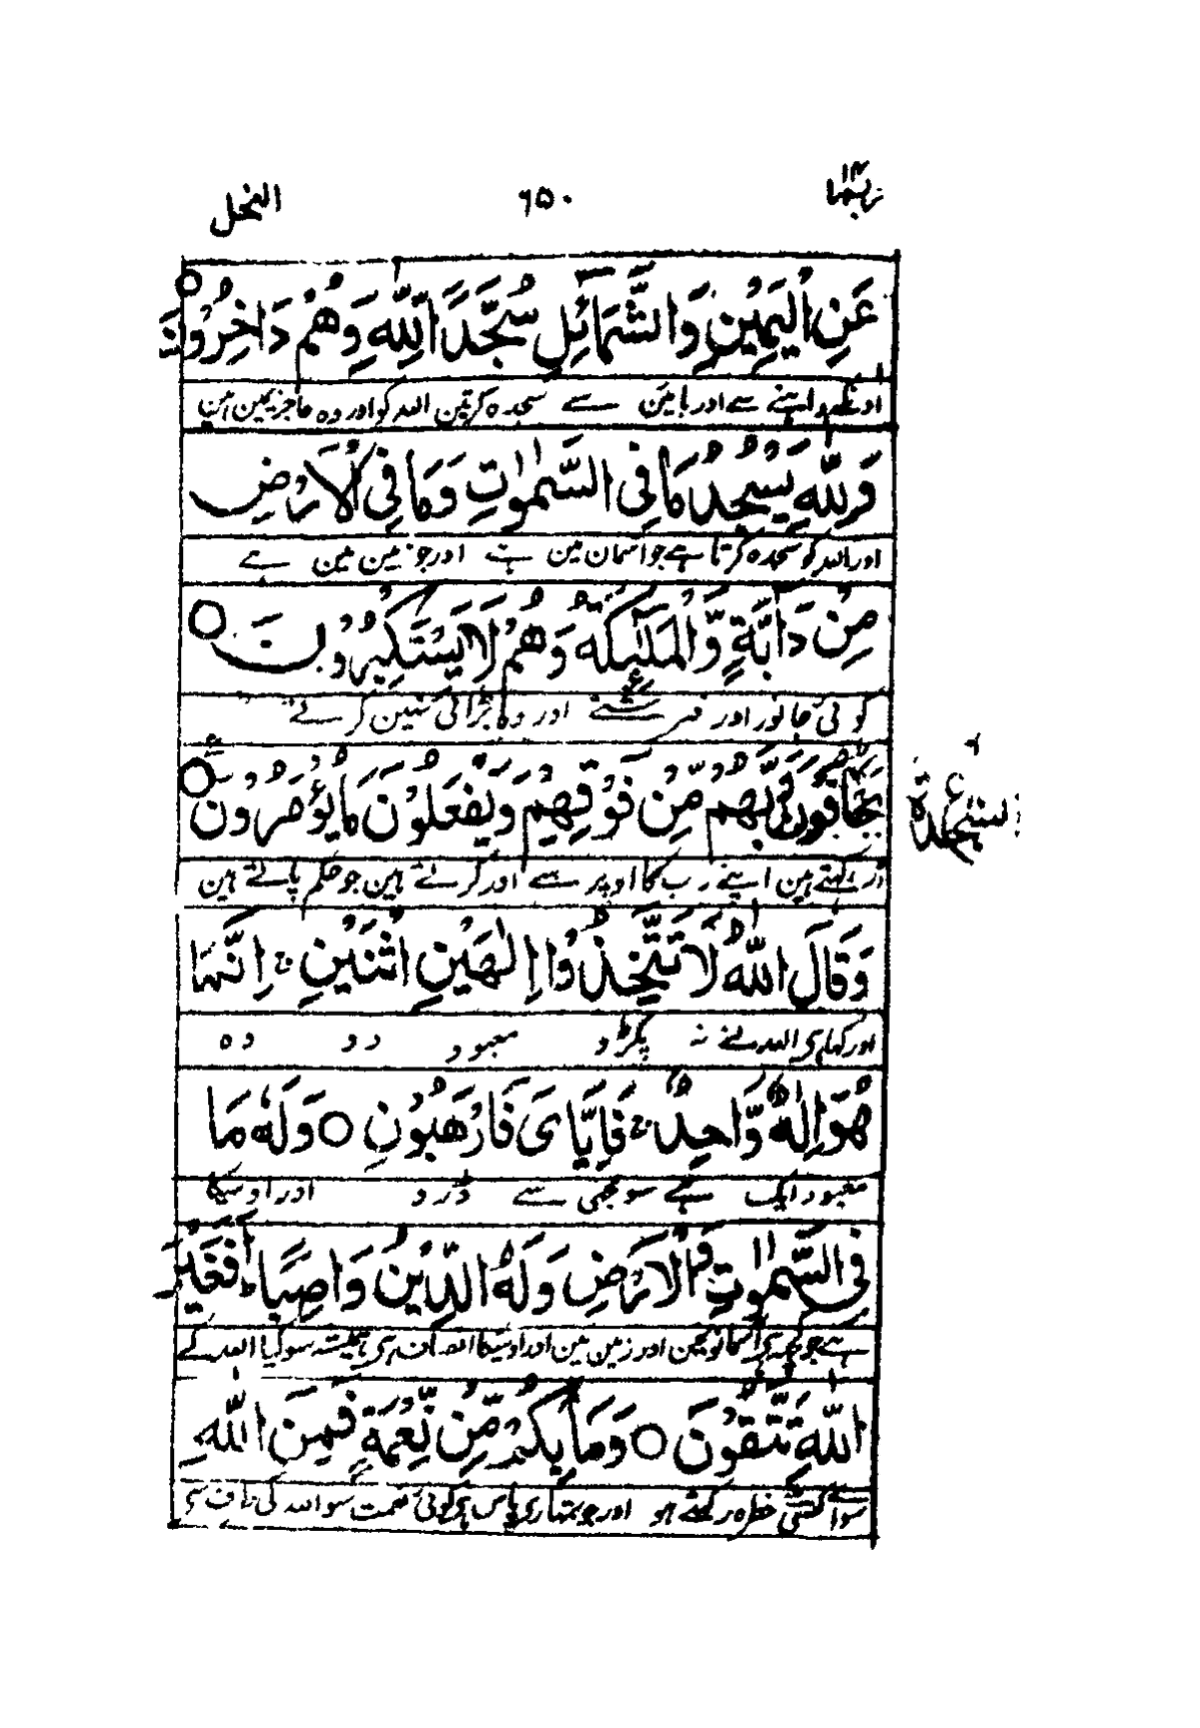 ربما ۱۴ ۶۵۰ النحل
عَنِ الْيَمِيْنِ وَالشَّمَآئِلِ سُجَّدًا لِّلّٰهِ وَهُمْ دَاخِرُوْنَ ○
داہنے سے اور بائین سے سجدہ کرتین اللہ کو اور وہ عاجزی مین ہین
وَلِلّٰهِ يَسْجُدُ مَا فِى السَّمٰوٰتِ وَمَا فِى الْاَرْضِ
اور اللہ کو سجدہ کرتا ہے جو آسمان مین ہے اور جو زمین مین ہے
مِنْ دَآبَّةٍ وَّالْمَلٰٓئِكَةُ وَهُمْ لَا يَسْتَكْبِرُوْنَ ○
کوئی جانور اور فرشتے اور وہ بڑائی نہین کرتے
يَخَافُوْنَ رَبَّهُمْ مِّنْ فَوْقِهِمْ وَيَفْعَلُوْنَ مَا يُؤْمَرُوْنَ ○
السجدة
ڈر رکھتے ہین اپنے رب کا اوپر سے اور کرتے ہین جو حکم پاتے ہین
وَقَالَ اللّٰهُ لَا تَتَّخِذُوْا اِلٰهَيْنِ اثْنَيْنِ ج اِنَّمَا
اور کہا ہی اللہ نے نہ پکڑو معبود دو وہ
هُوَ اِلٰهٌ وَّاحِدٌ ج فَاِيَّاىَ فَارْهَبُوْنِ ○ وَلَهٗ مَا
معبود ایک ہے سو مجھی سے ڈرو اور اوسیکا
فِى السَّمٰوٰتِ وَالْاَرْضِ وَلَهُ الدِّيْنُ وَاصِبًا ط اَفَغَيْرَ
ہے جو کچھ ہی آسمانونمین اور زمین مین اور اوسیکا انصاف ہی ہمیشہ سو کیا اللہ کے
اللّٰهِ تَتَّقُوْنَ ○ وَمَا بِكُمْ مِّنْ نِّعْمَةٍ فَمِنَ اللّٰهِ
سوائے کسی خطرہ رکھتے ہو اور جو تمہاری پاس ہی کوئی نعمت سو اللہ کی طرف سی